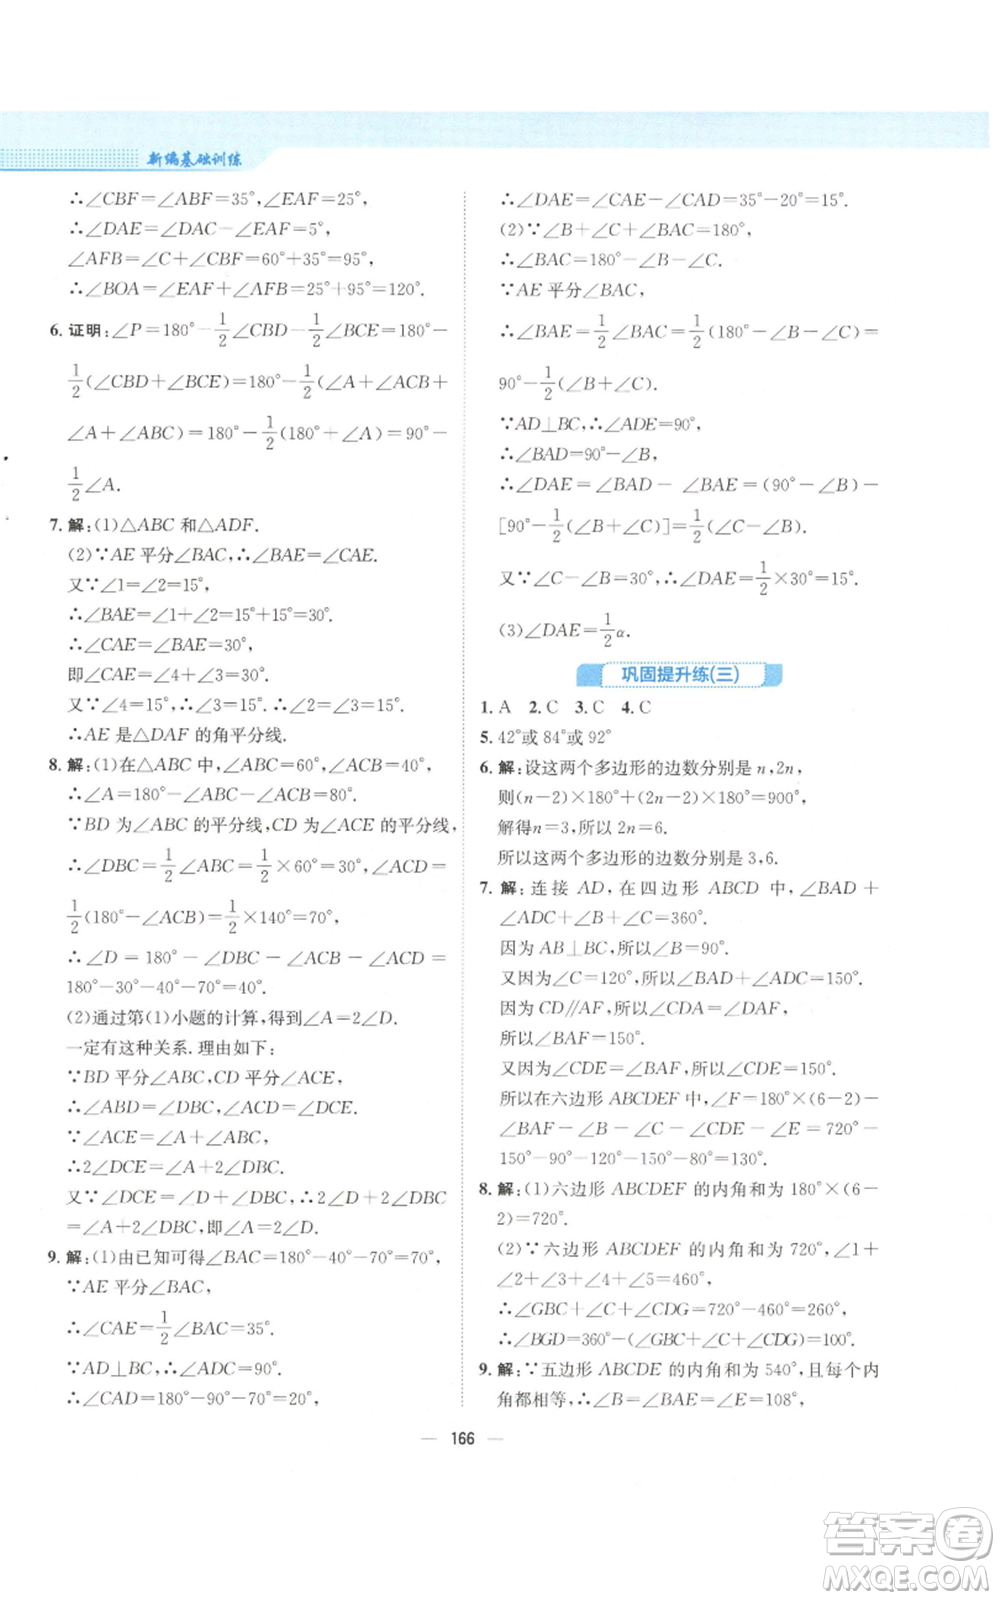 新编基础训练
∴∠CBF=∠ABF=35°,∠EAF=25°,
∴∠DAE=∠DAC-∠EAF=5°,
∠AFB=∠C+∠CBF=60°+35°=95°,
∴∠BOA=∠EAF+∠AFB=25°+95°=120°.
6. 证明:∠P=180°-1/2∠CBD-1/2∠BCE=180°-
1/2(∠CBD+∠BCE)=180°-1/2(∠A+∠ACB+
∠A+∠ABC)=180°-1/2(180°+∠A)=90°-
1/2∠A.
7. 解:(1)△ABC 和△ADF.
(2)∵AE 平分∠BAC,∴∠BAE=∠CAE.
又∵∠1=∠2=15°,
∴∠BAE=∠1+∠2=15°+15°=30°.
∴∠CAE=∠BAE=30°,
即∠CAE=∠4+∠3=30°.
又∵∠4=15°,∴∠3=15°=∠2.
∴AE 是△DAF 的角平分线.
8. 解:(1)在△ABC 中,∠ABC=60°,∠ACB=40°,
∴∠A=180°-∠ABC-∠ACB=80°.
∵BD 为∠ABC 的平分线,CD 为∠ACE 的平分线,
∴∠DBC=1/2∠ABC=1/2×60°=30°,∠ACD=
1/2(180°-∠ACB)=1/2×140°=70°,
∴∠D=180°-∠DBC-∠ACB-∠ACD=
180°-30°-40°-70°=40°.
(2)通过第(1)小题的计算,得到∠A=2∠D.
一定有这种关系. 理由如下:
∵BD 平分∠ABC,CD 平分∠ACE,
∴∠ABD=∠DBC,∠ACD=∠DCE.
∵∠ACE=∠A+∠ABC,
∴2∠DCE=∠A+2∠DBC.
又∵∠DCE=∠D+∠DBC,∴2∠D+2∠DBC=
∠A+2∠DBC,即∠A=2∠D.
9. 解:(1)由已知可得∠BAC=180°-40°-70°=70°.
∵AE 平分∠BAC,
∴∠CAE=1/2∠BAC=35°.
∵AD⊥BC,∴∠ADC=90°.
∴∠CAD=180°-90°-70°=20°,
∴∠DAE=∠CAE-∠CAD=35°-20°=15°.
(2)∵∠B+∠C+∠BAC=180°,
∴∠BAC=180°-∠B-∠C.
∵AE 平分∠BAC,
∴∠BAE=1/2∠BAC=1/2(180°-∠B-∠C)=
90°-1/2(∠B+∠C).
∵AD⊥BC,∴∠ADE=90°,
∴∠BAD=90°-∠B,
∴∠DAE=∠BAD-∠BAE=(90°-∠B)-
[90°-1/2(∠B+∠C)]=1/2(∠C-∠B).
又∵∠C-∠B=30°,∴∠DAE=1/2×30°=15°.
(3)∠DAE=1/2α.
巩固提升练(三)
1. A 2. C 3. C 4. C
5. 42°或 84°或 92°
6. 解:设这两个多边形的边数分别是 n,2n,
则(n-2)×180°+(2n-2)×180°=900°,
解得n=3,所以 2n=6.
所以这两个多边形的边数分别是 3,6.
7. 解:连接 AD,在四边形 ABCD 中,∠BAD+
∠ADC+∠B+∠C=360°.
因为 AB⊥BC,所以∠B=90°.
又因为∠C=120°,所以∠BAD+∠ADC=150°.
因为 CD∥AF,所以∠CDA=∠DAF,
所以∠BAF=150°.
又因为∠CDE=∠BAF,所以∠CDE=150°.
所以在六边形 ABCDEF 中,∠F=180°×(6-2)-
∠BAF-∠B-∠C-∠CDE-∠E=720°-
150°-90°-120°-150°-80°=130°.
8. 解:(1)六边形 ABCDEF 的内角和为 180°×(6-
2)=720°.
(2)∵六边形 ABCDEF 的内角和为 720°,∠1+
∠2+∠3+∠4+∠5=460°,
∴∠GBC+∠C+∠CDG=720°-460°=260°,
∴∠BGD=360°-(∠GBC+∠C+∠CDG)=100°.
9. 解:∵五边形 ABCDE 的内角和为 540°,且每个内
角都相等,∴∠B=∠BAE=∠E=108°,
— 166 —
答案卷
MXQE.COM